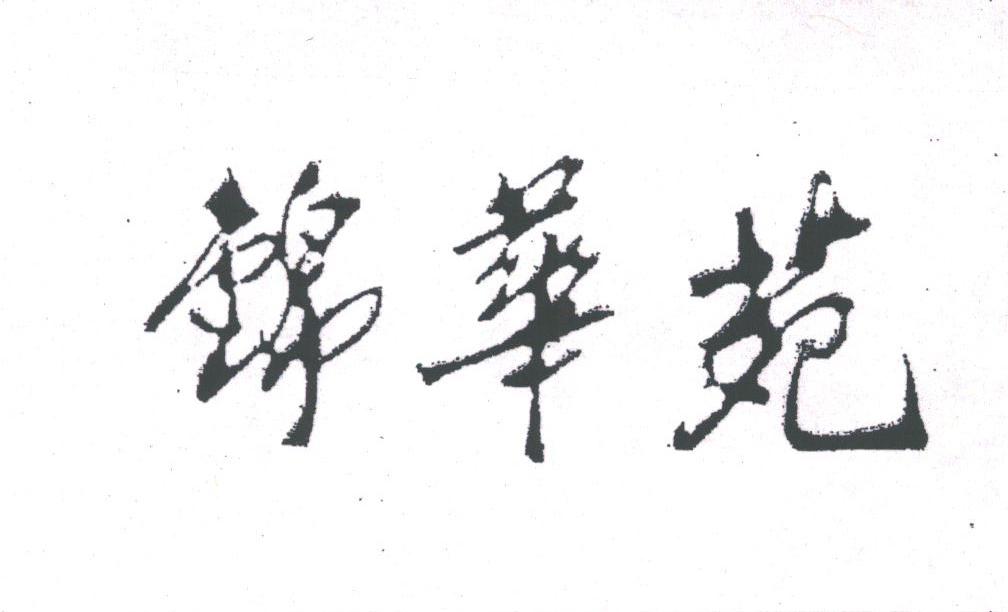 錦華苑